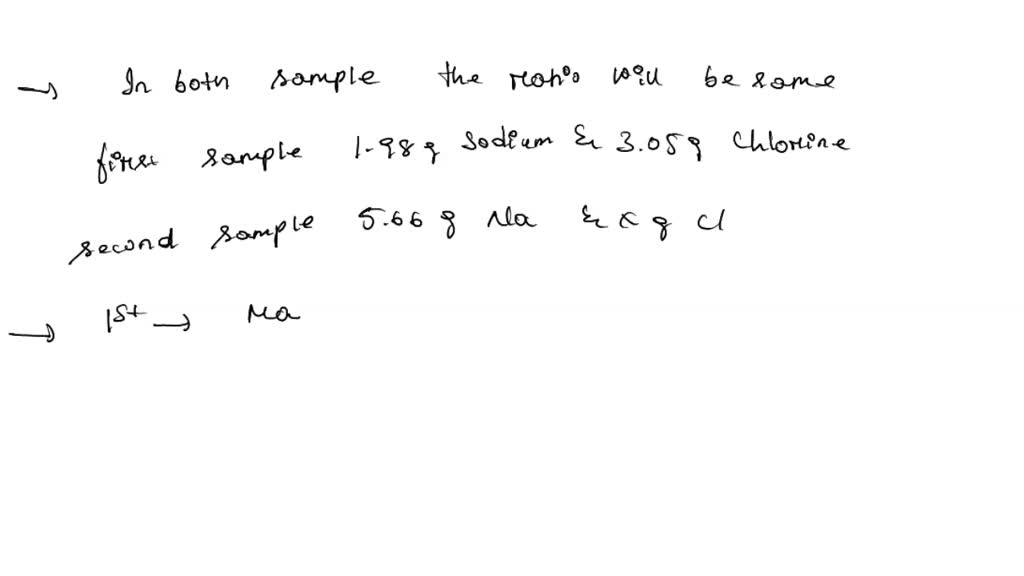 → In both sample the ratio will be same
first sample 1.98 g sodium & 3.05 g chlorine
second sample 5.66 g Na & x g Cl
→ 1st → Na